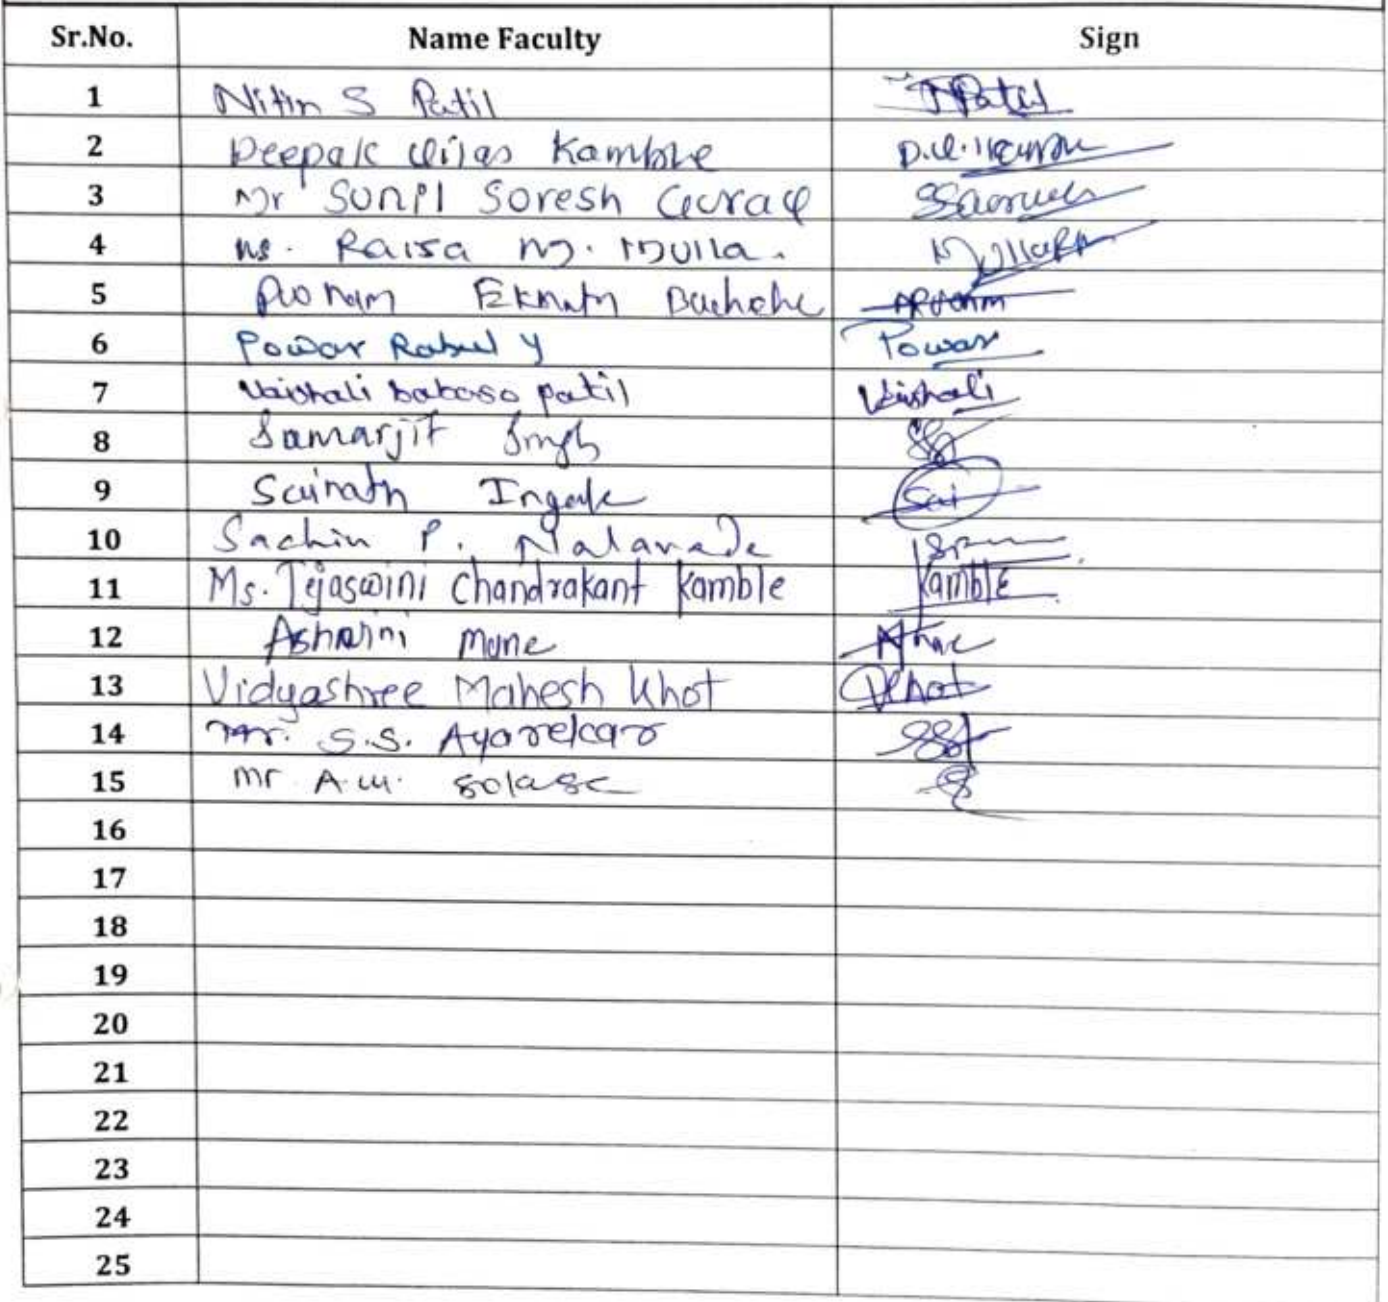 Sr.No. Name Faculty Sign
1 Nitin S Patil NPatil
2 Deepak Vilas Kamble D.V.Kamble
3 Mr Sunil Suresh Gurav
4 Ms. Raisa M. Mulla. Mulla
5 Poonam Eknath
6 Powar Rahul Y Powar
7 Vaishali babaso patil Vaishali
8 Samarjit Singh
9 Sainath Ingale Sai
10 Sachin P. Malavade
11 Ms. Tejaswini Chandrakant Kamble Kamble
12 Ashwini Mane
13 Vidyashree Mahesh Khot VKhot
14 Mr. S.S. Ayarekar
15 Mr A.M.
16
17
18
19
20
21
22
23
24
25